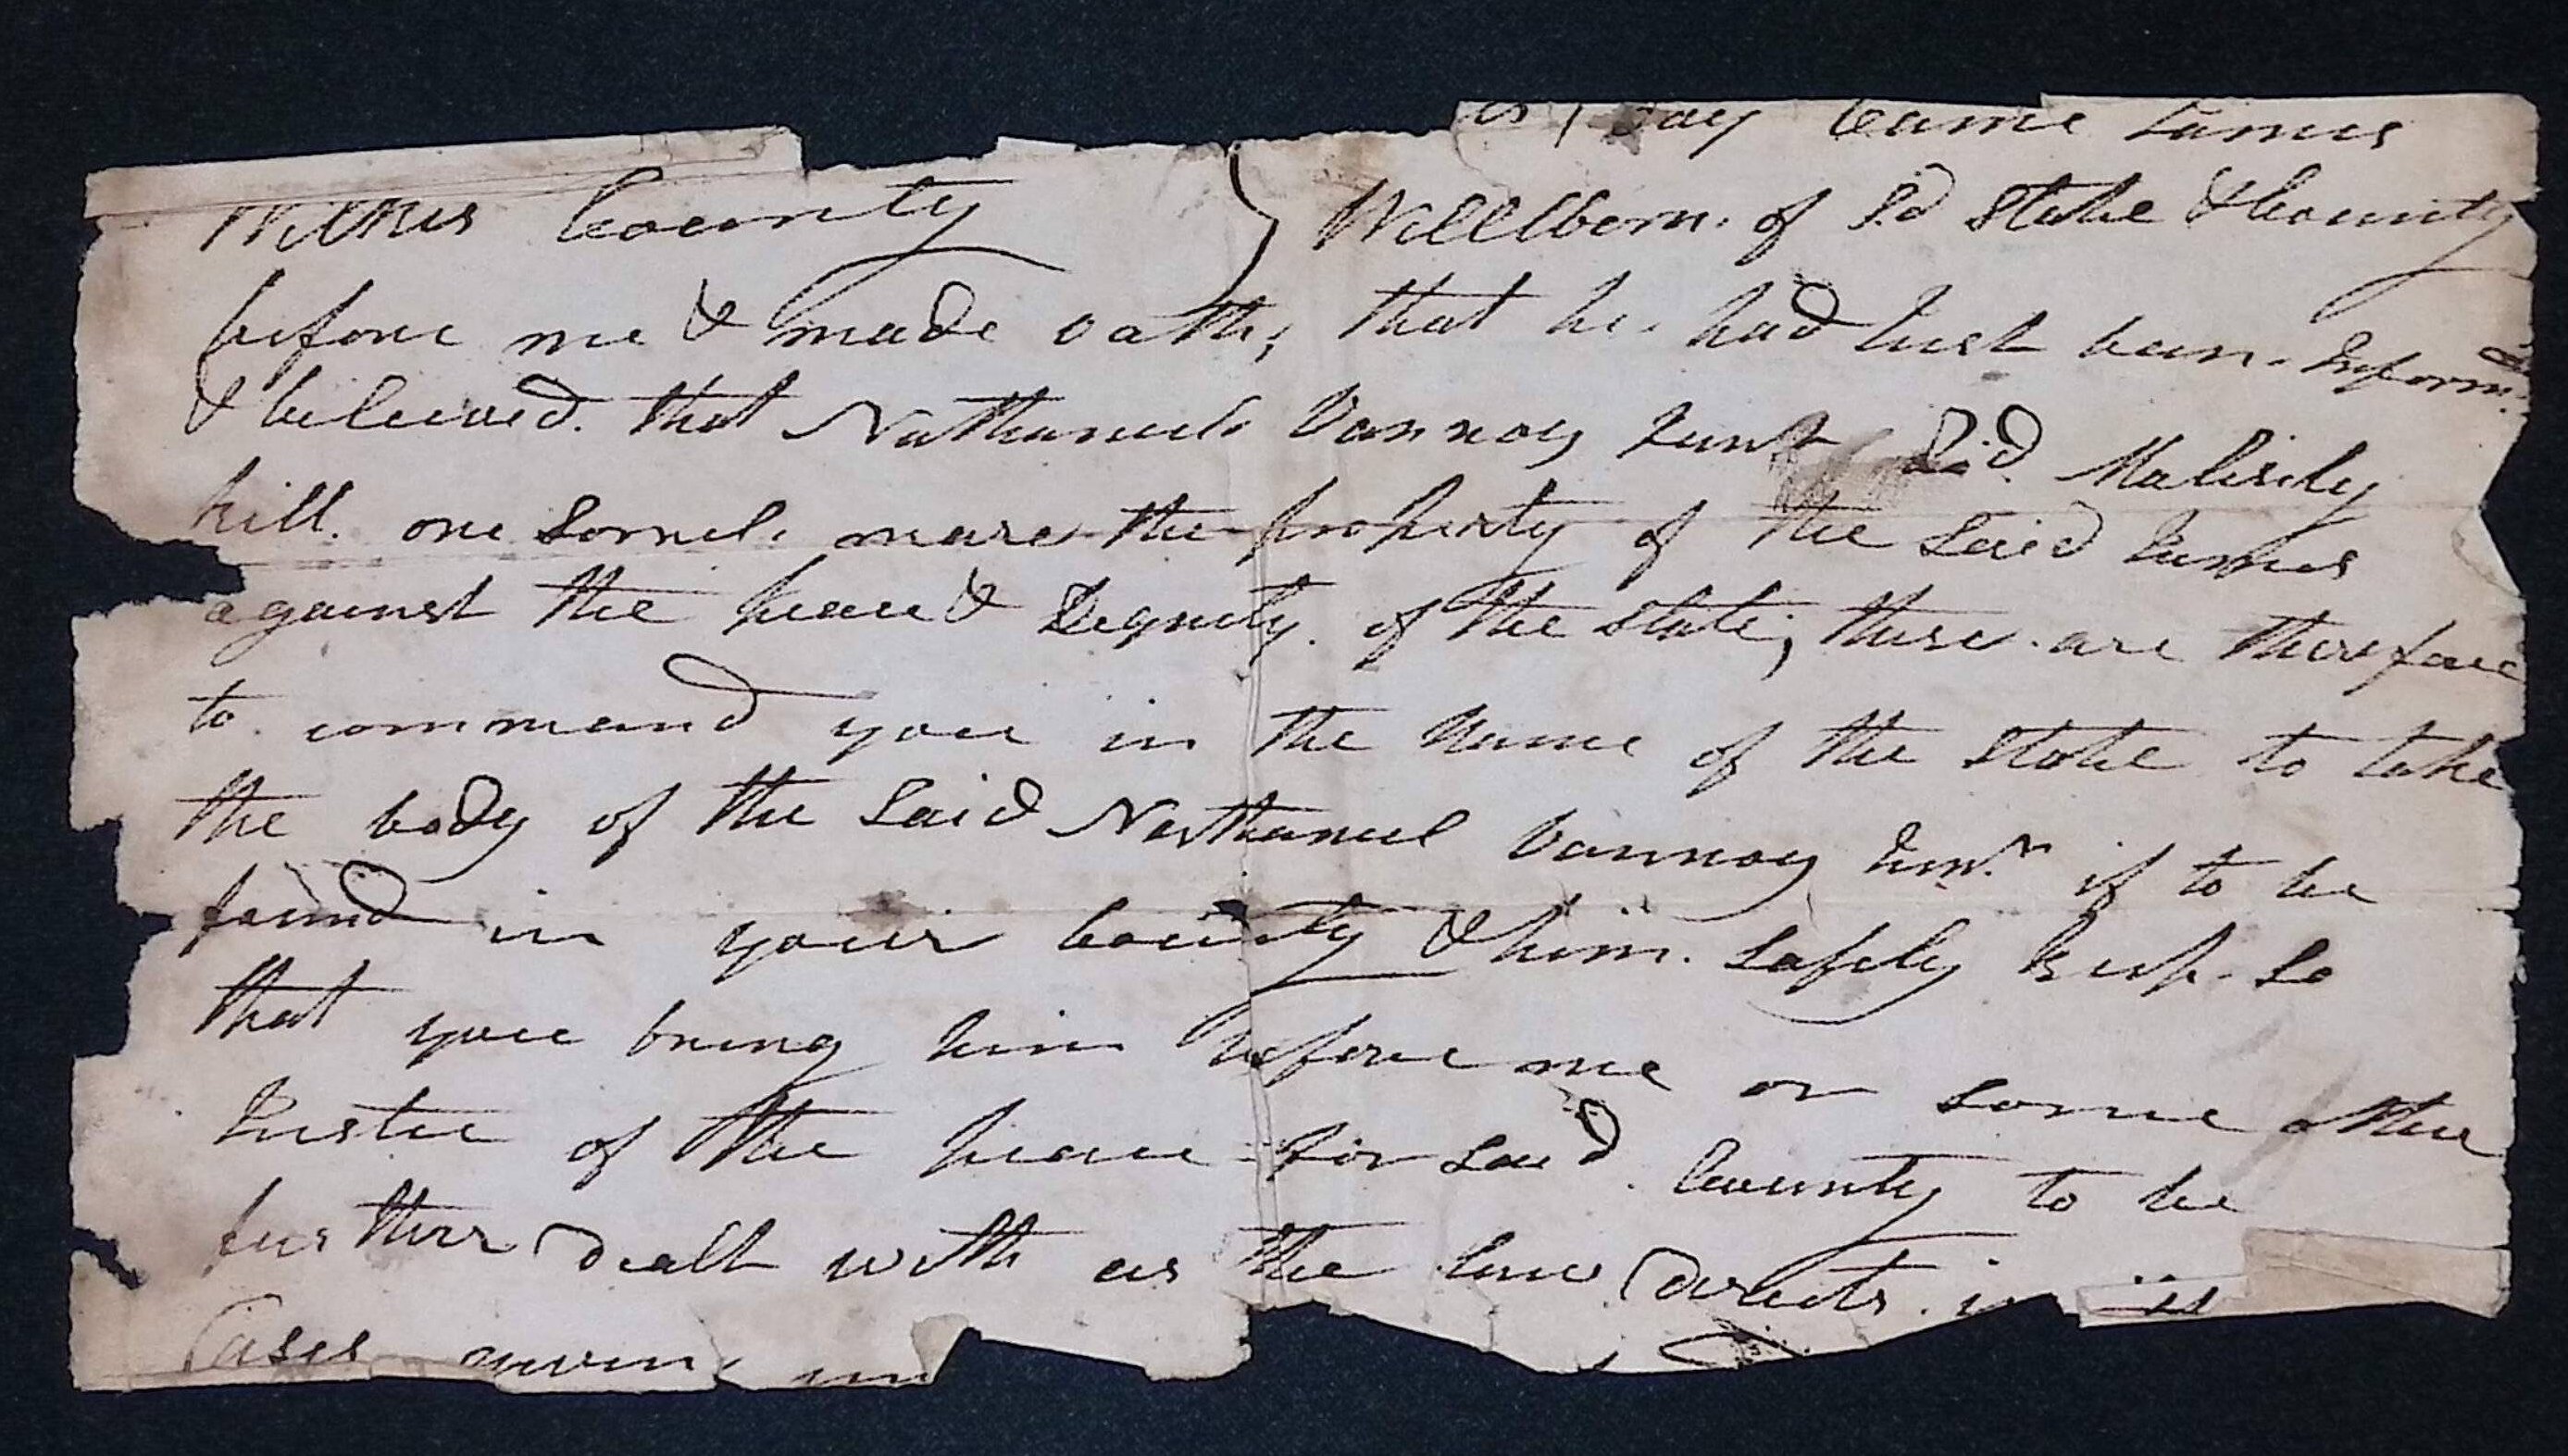 day Came James
Wilkes County } Wellborn. of Sd State & County
before me & made oath; that he had Just been Informd
& beleived. that Nathaniel Vannoy Junr Did Malisily
kill. one Sorrel. mare the property of the Said James
against the peace & Degnity. of the State; these are therefore
to command you in the Name of the State to take
the body of the Said Nathaniel Vannoy Junr. if to be
found in your County & him. Safely keep So
that you bring him before me or some other
Justice of the peace for said County to be
further Dealt with as the law Directs. in
Cases given